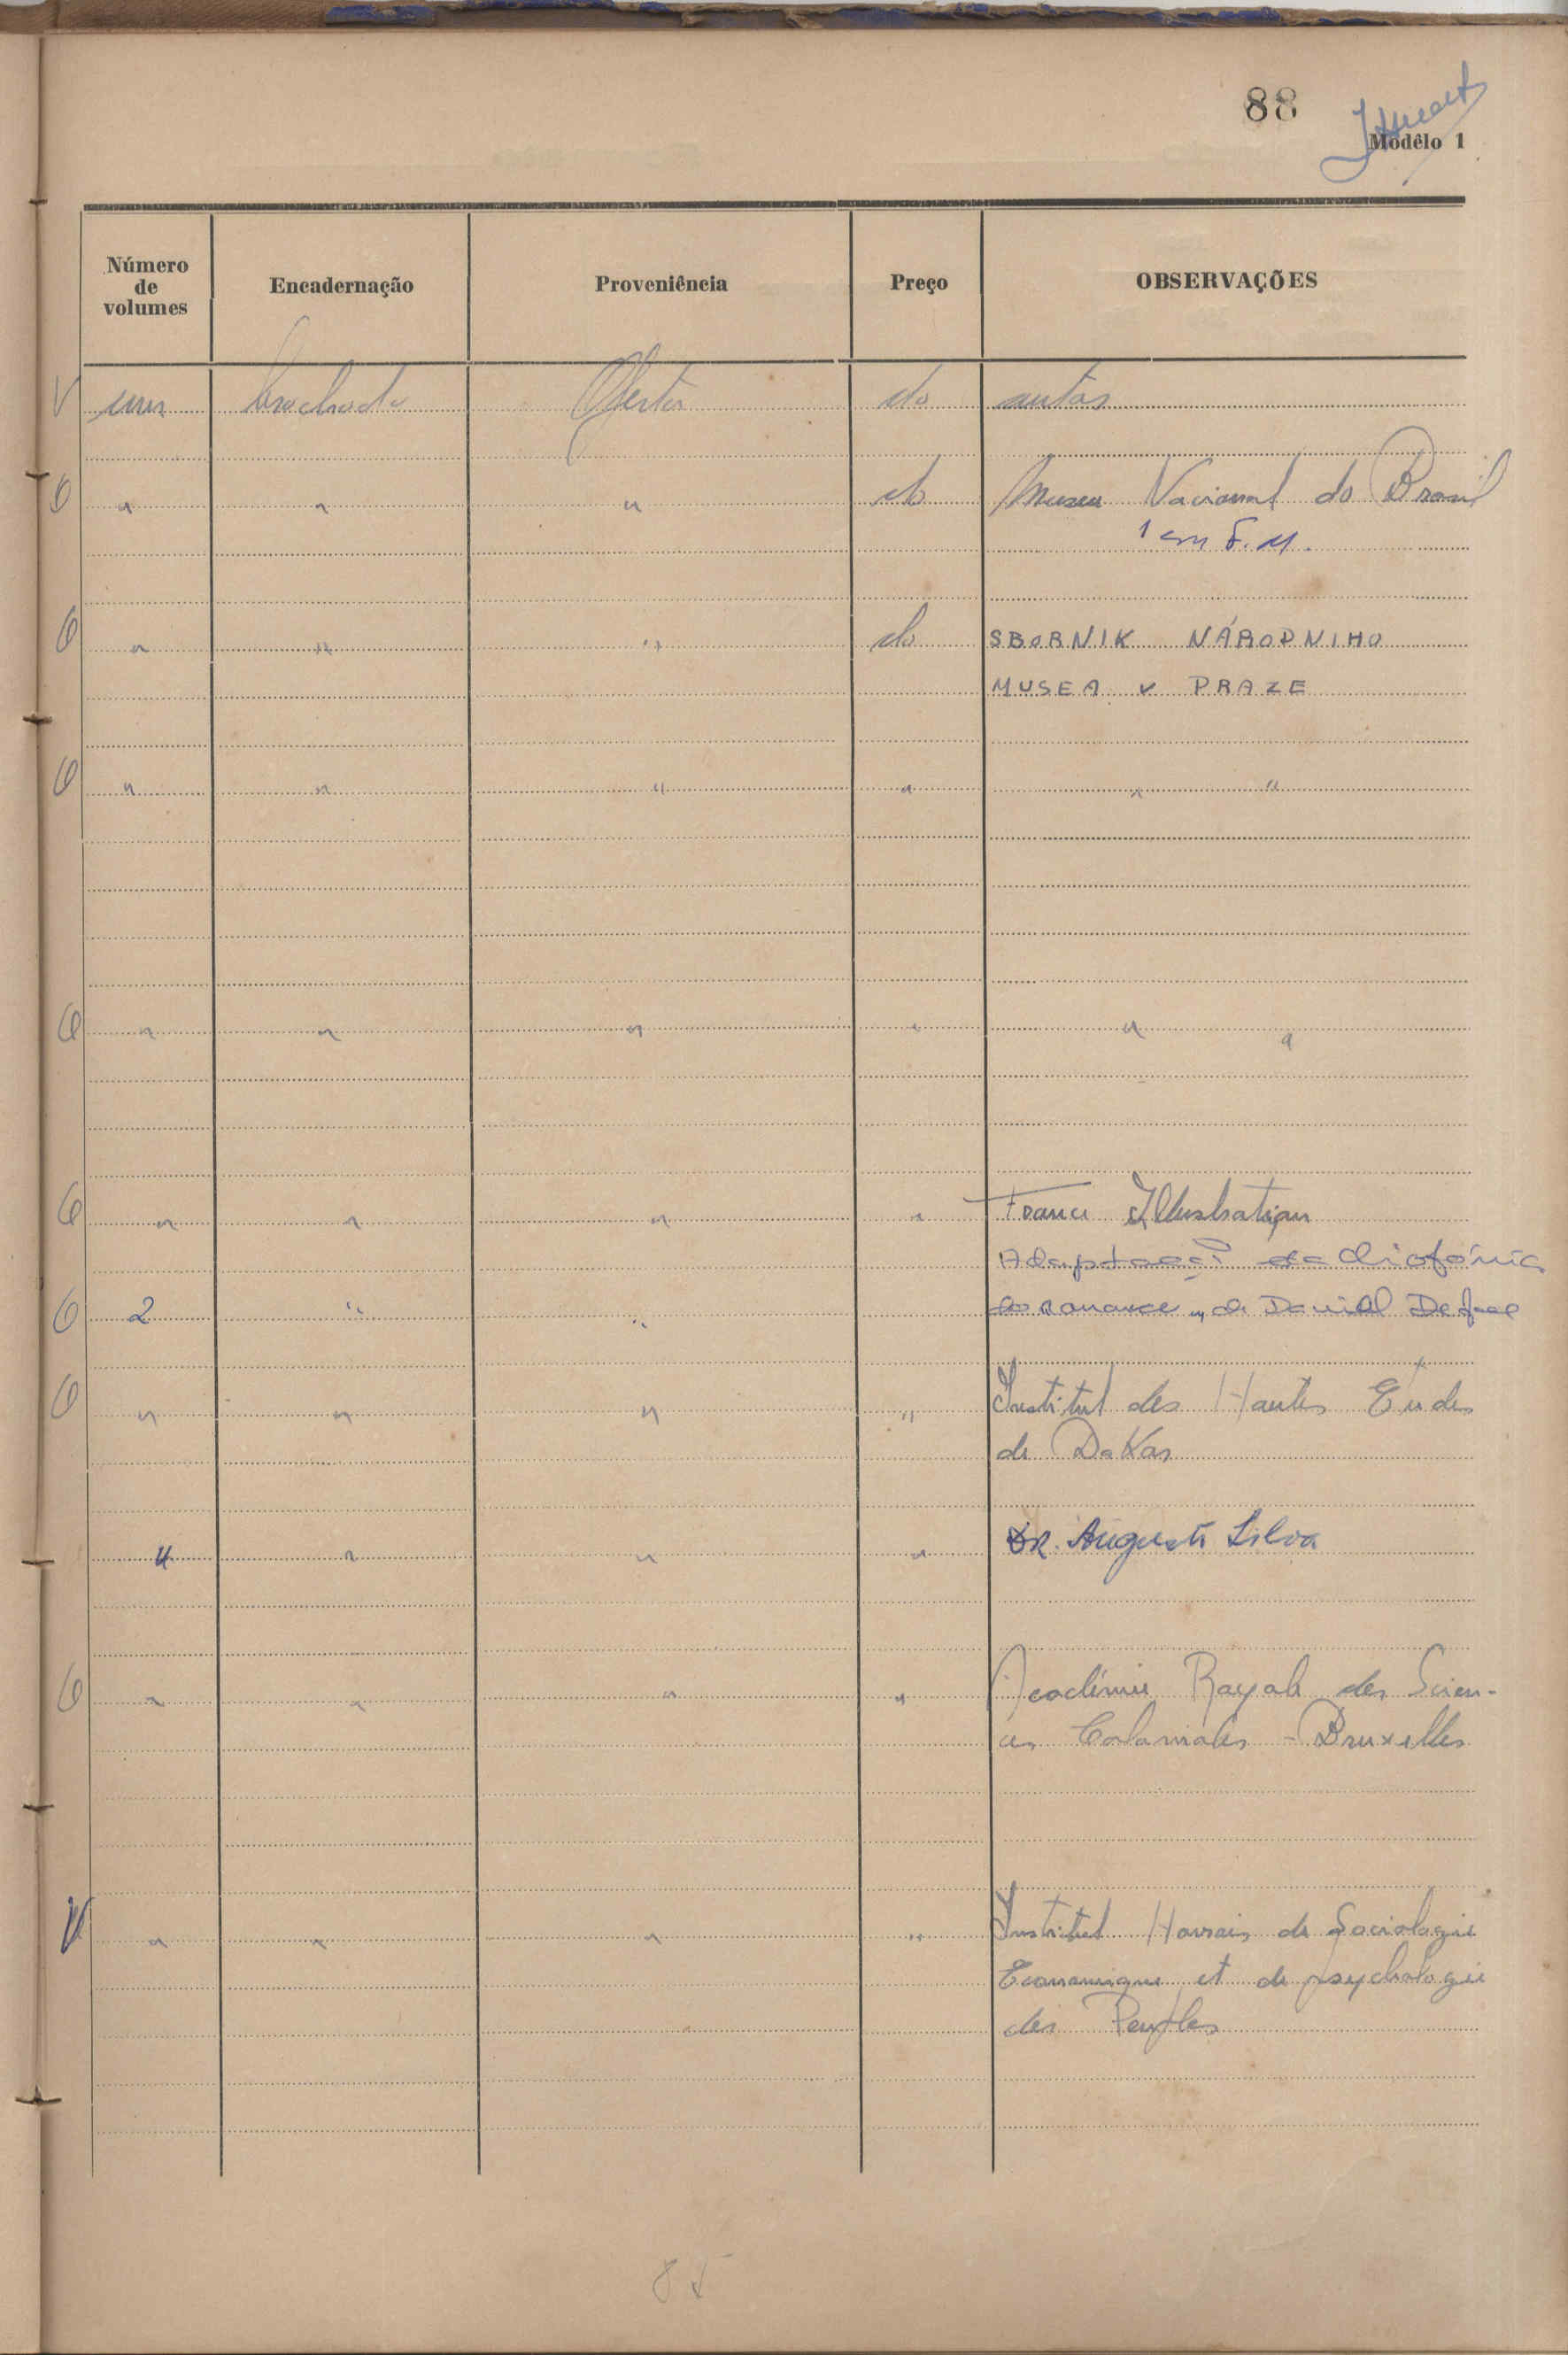 88
Modêlo 1
Número de volumes Encadernação Proveniência Preço OBSERVAÇÕES
V um brochado Oferta do autor
O " " " do Museu Nacional do Brasil
1 em F. M.
O " " " do SBORNIK NÁRODNIHO
MUSEA v PRAZE
O " " " " " "
O " " " " " "
O " " " " France Illustration
Adaptação radiofónica
O 2 " " do romance, de Daniel Defoe
O " " " " Institut des Hautes Études
de Dakar
4 " " " DR. Augusto Silva
O " " " " Académie Royale des Scien-
ces Coloniales - Bruxelles
V " " " " Institut Havrais de Sociologie
Economique et de psychologie
des Peuples
85